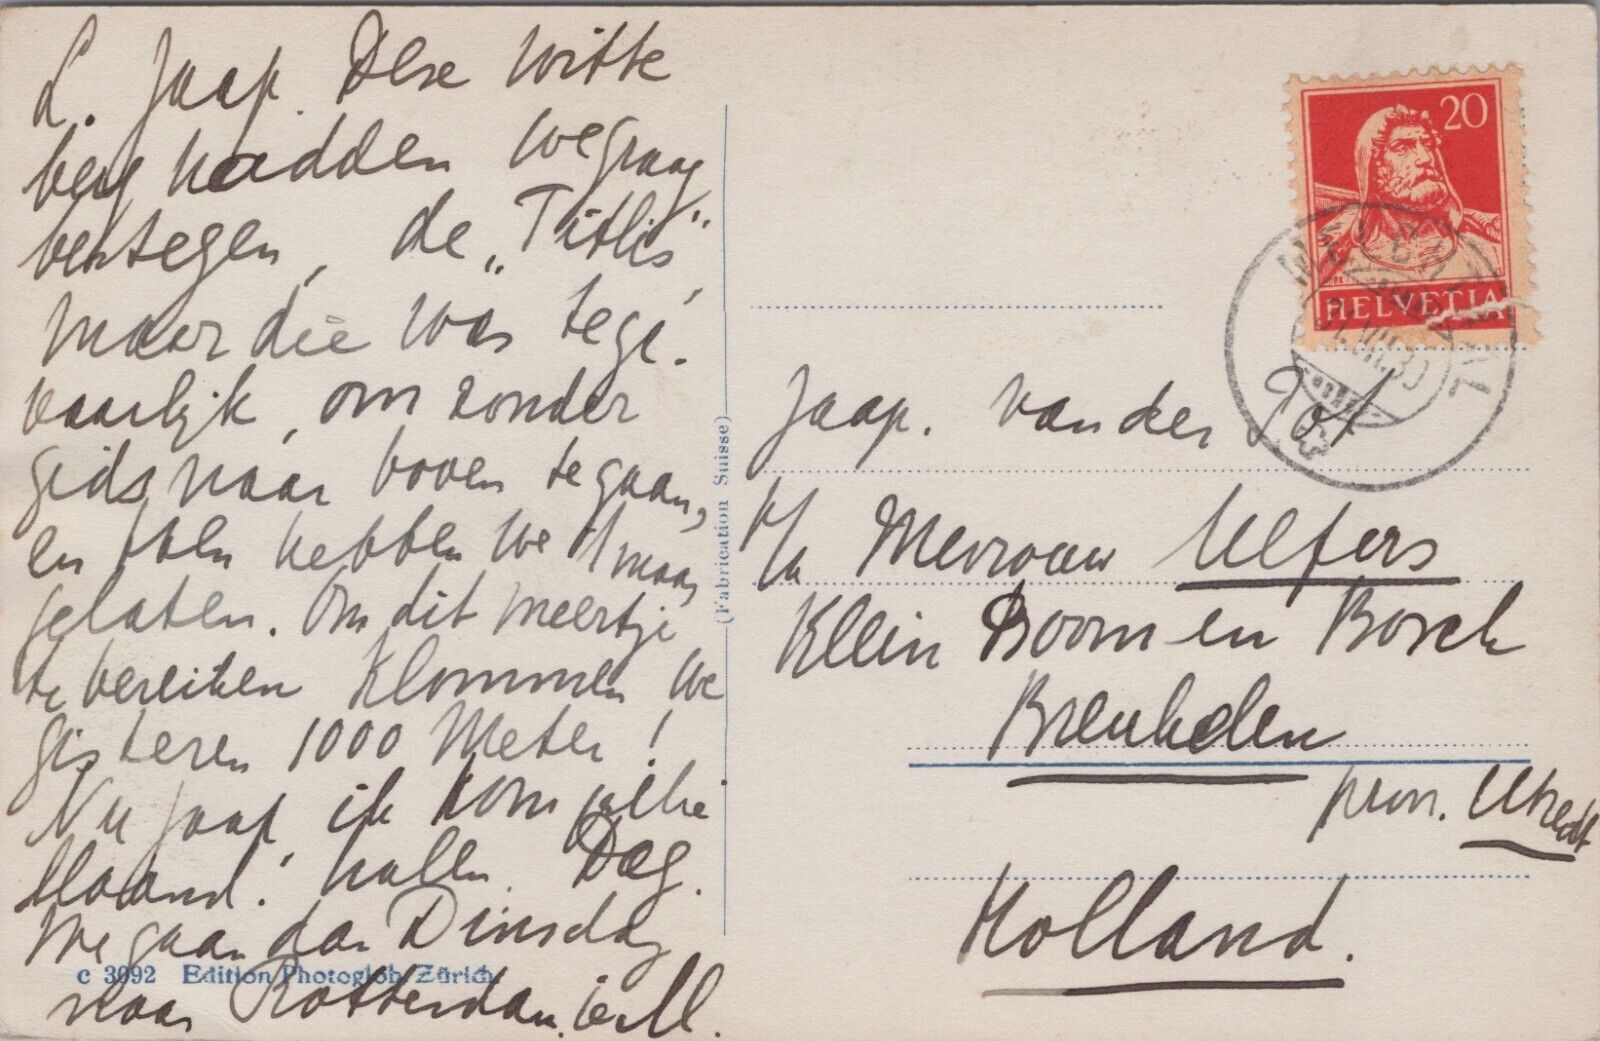 L. Jaap. Deze witte
berg hadden we graag
bestegen, de „Titlis",
maar die was te ge-
vaarlijk, om zonder
gids naar boven te gaan,
en toen hebben we 't maar
gelaten. Om dit meertje
te bereiken klommen we
gisteren 1000 Meter!
Nu Jaap, ik kom jullie
Maand. halen. Dag.
We gaan dan Dinsdag
naar Rotterdam.
c 3092 Edition Photoglob, Zürich
(Fabrication Suisse)
20
HELVETIA
Jaap. van der Pot
p/a Mevrouw Ulfers
Klein Boom en Bosch
Breukelen
prov. Utrecht
Holland.